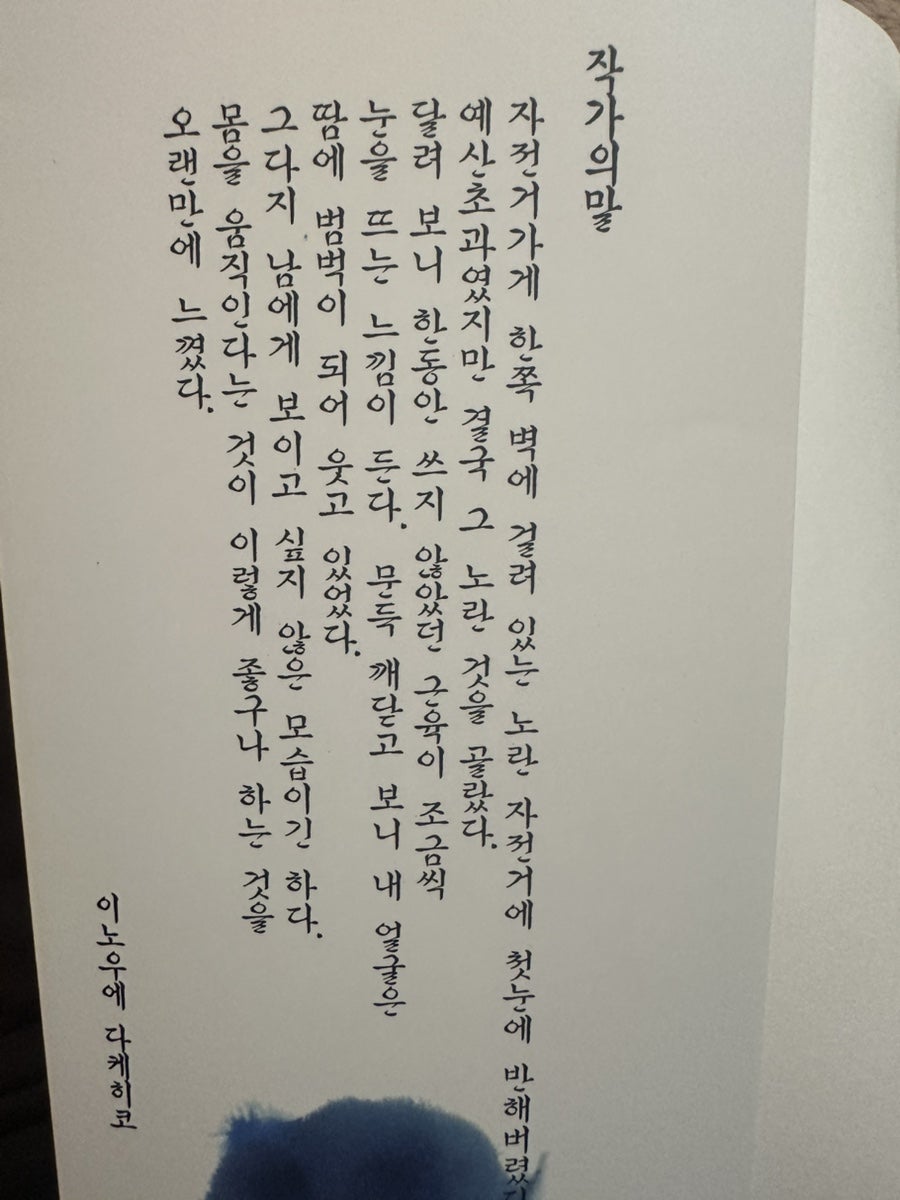 작가의말
자전거가게 한쪽 벽에 걸려 있는 노란 자전거에 첫눈에 반해버렸다
예산초과였지만 결국 그 노란 것을 골랐다.
달려 보니 한동안 쓰지 않았던 근육이 조금씩
눈을 뜨는 느낌이 든다. 문득 깨닫고 보니 내 얼굴은
땀에 범벅이 되어 웃고 있었다.
그다지 남에게 보이고 싶지 않은 모습이긴 하다.
몸을 움직인다는 것이 이렇게 좋구나 하는 것을
오랜만에 느꼈다.
이노우에 다케히코